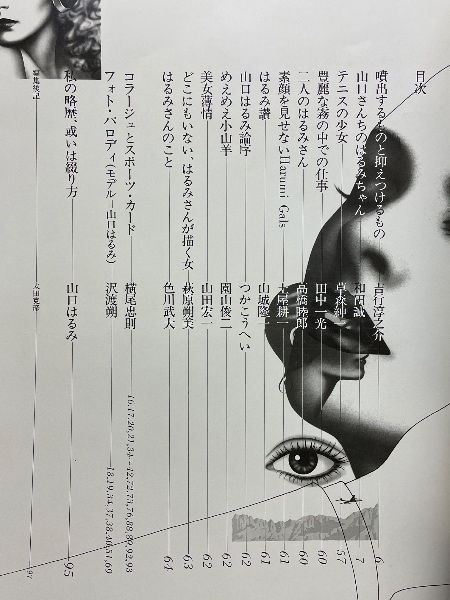 目次
噴出するものと抑えつけるもの 吉行淳之介 6
山口さんちのはるみちゃん 和田誠 7
テニスの少女 草森紳一 57
豊麗な霧の中での仕事 田中一光 60
二人のはるみさん 高橋睦郎 60
素顔を見せないHarumi Gals 十尾耕一 61
はるみ讃 山城隆一 61
山口はるみ論序 つかこうへい 62
めえめえ小山羊 園山俊二 62
美女薄情 山田宏一 62
どこにもいない、はるみさんが描く女 萩原朔美 63
はるみさんのこと 色川武大 64
コラージュとスポーツ・カード 横尾忠則 16,17,20,21,34〜42,72,73,76,88,89,92,93
フォト・パロディ(モデル＝山口はるみ) 沢渡朔 18,19,34,37,38,40,51,69
私の略歴、或いは綴り方 山口はるみ 95
編集後記 97